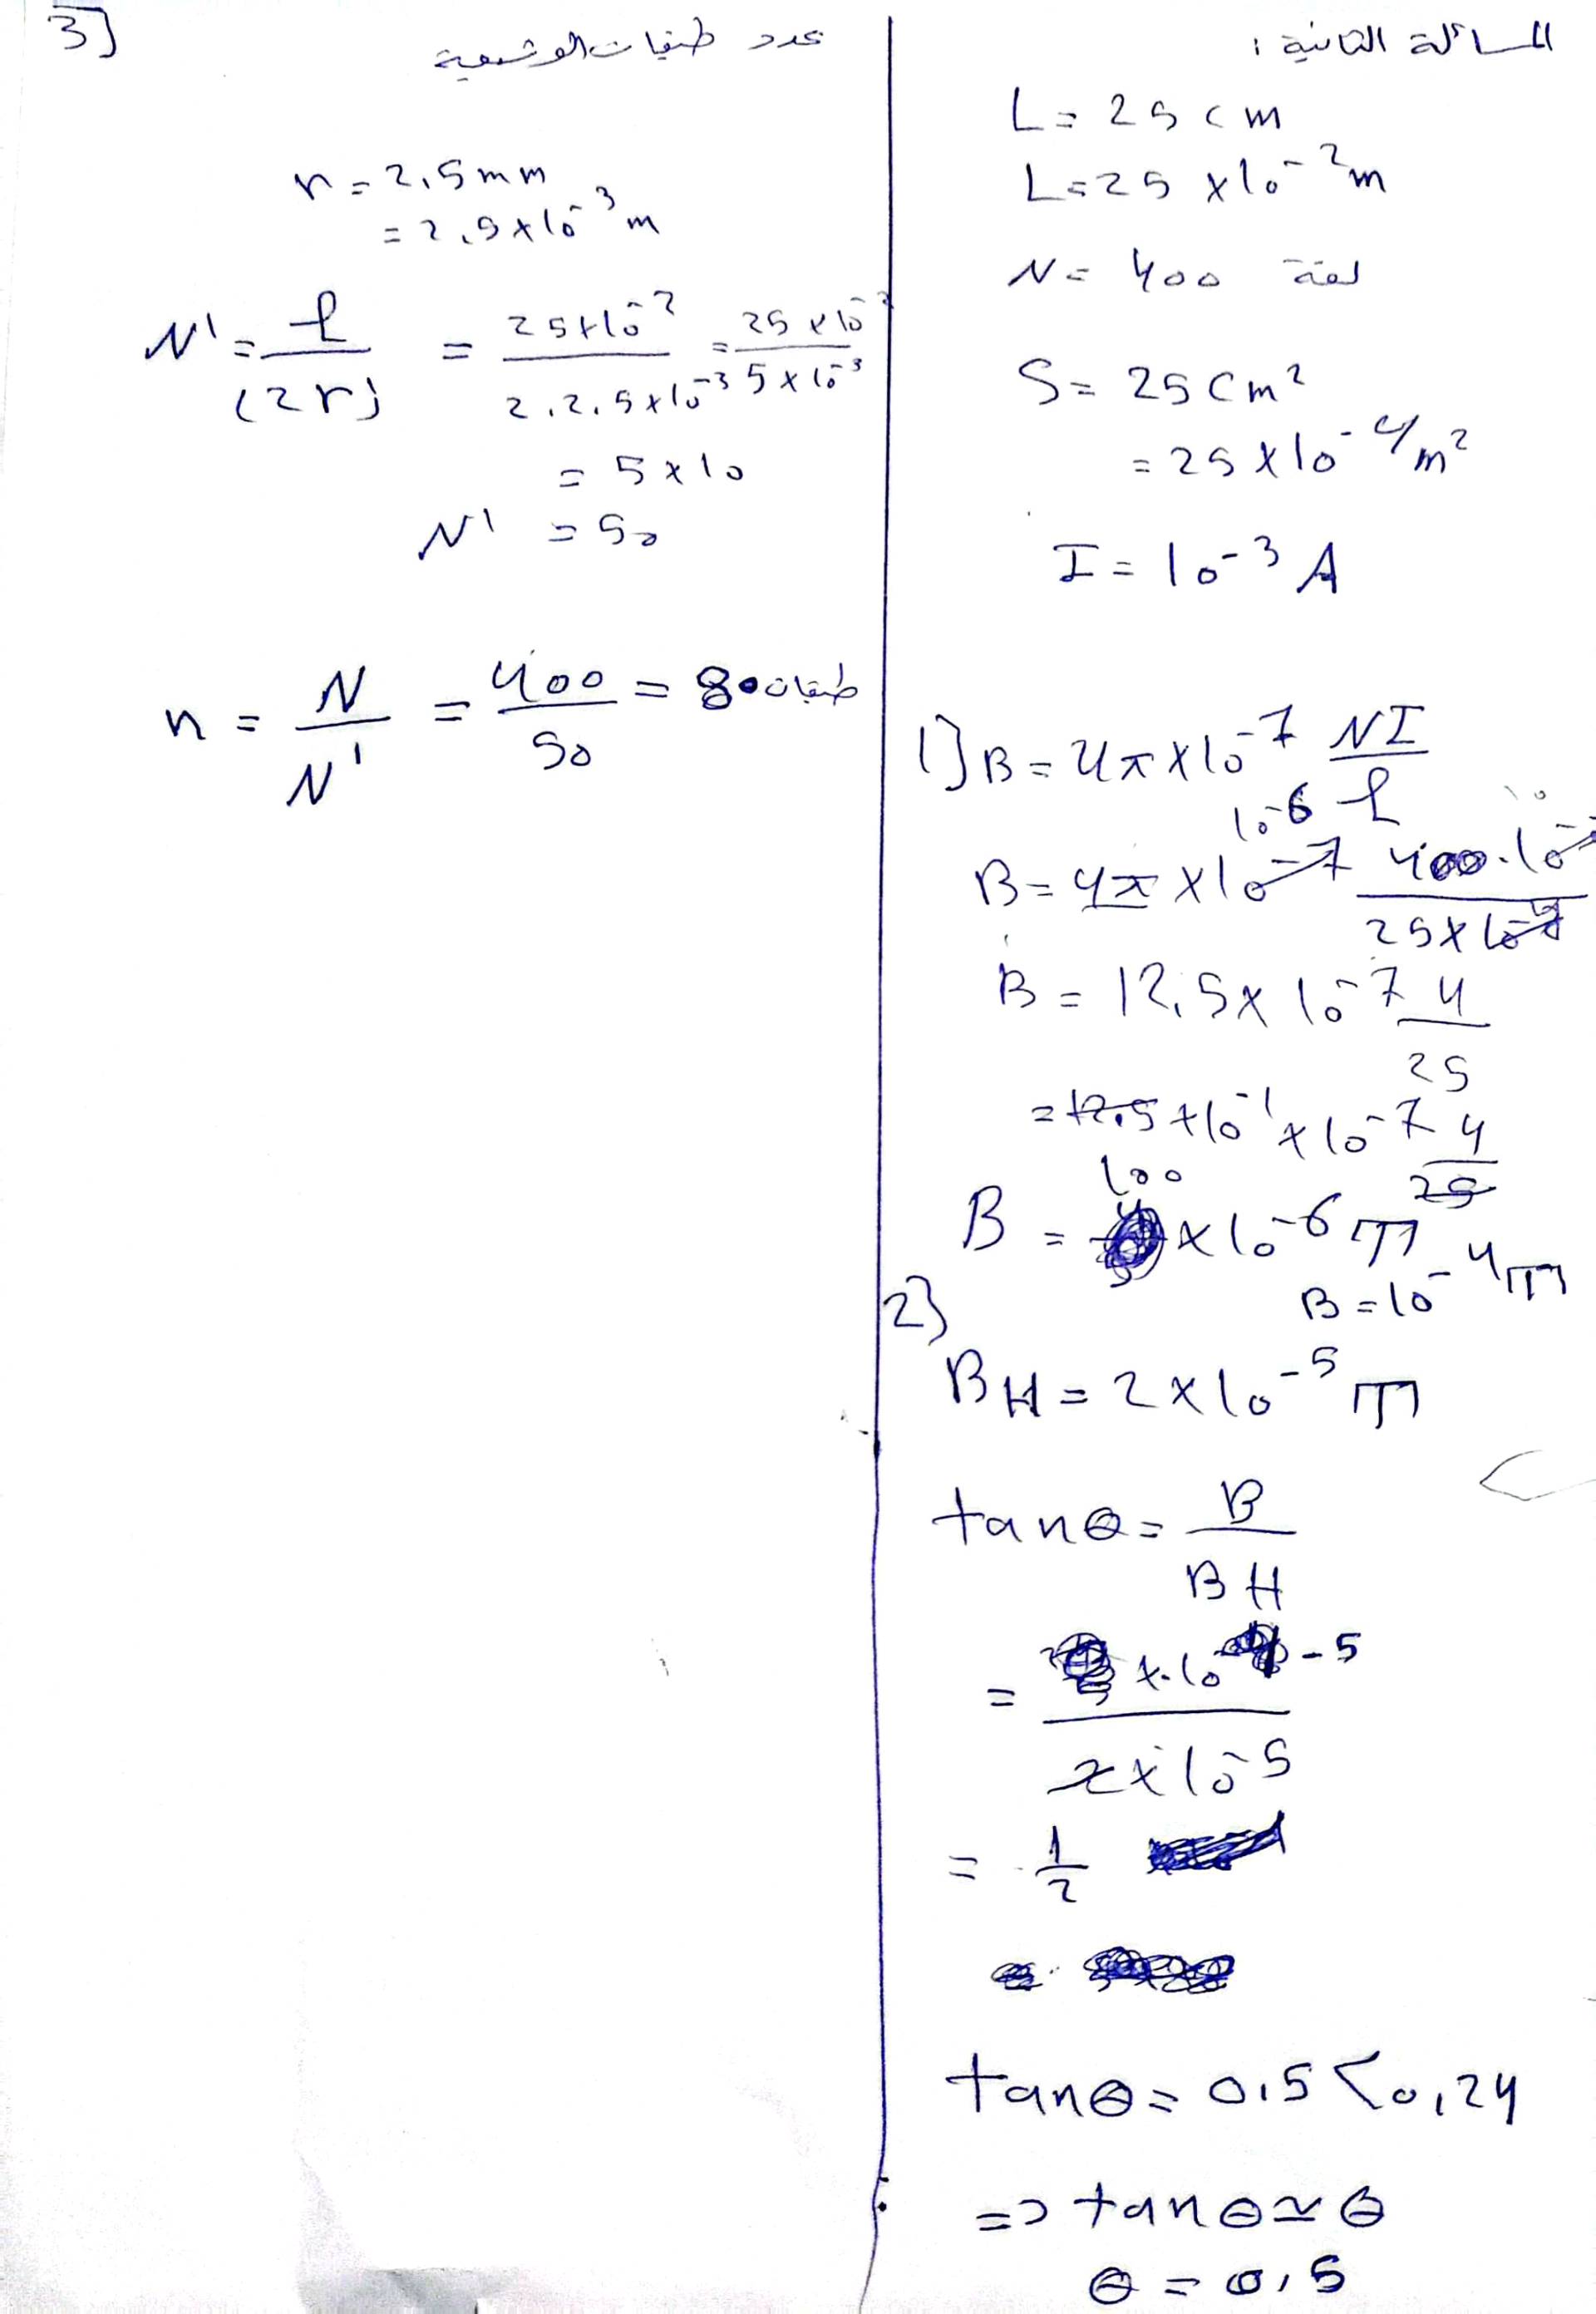 المسألة الثانية :
L = 25 cm
L = 25 × 10^-2 m
N = 400 لفة
S = 25 cm²
= 25 × 10^-4 m²
I = 10^-3 A
1] B = 4π × 10^-7 NI / ℓ
10^-6
B = 4π × 10^-7 400 . 10^-3 / 25 × 10^-2
B = 12,5 × 10^-7 4 / 25
= 12,5 × 10^-1 × 10^-7 4 / 25
100
B = × 10^-6 T
B = 10^-4 T
2}
BH = 2 × 10^-5 T
tanθ = B / BH
= × 10^-5 / 2 × 10^-5
= 1/2
tanθ = 0,5 < 0,24
=> tanθ ≃ θ
θ = 0,5
3] عدد طبقات الوشيعة
r = 2,5 mm
= 2,5 × 10^-3 m
N' = ℓ / (2r) = 25 × 10^-2 / 2 . 2,5 × 10^-3 = 25 × 10^-2 / 5 × 10^-3
= 5 × 10
N' = 50
n = N / N' = 400 / 50 = 8 طبقات